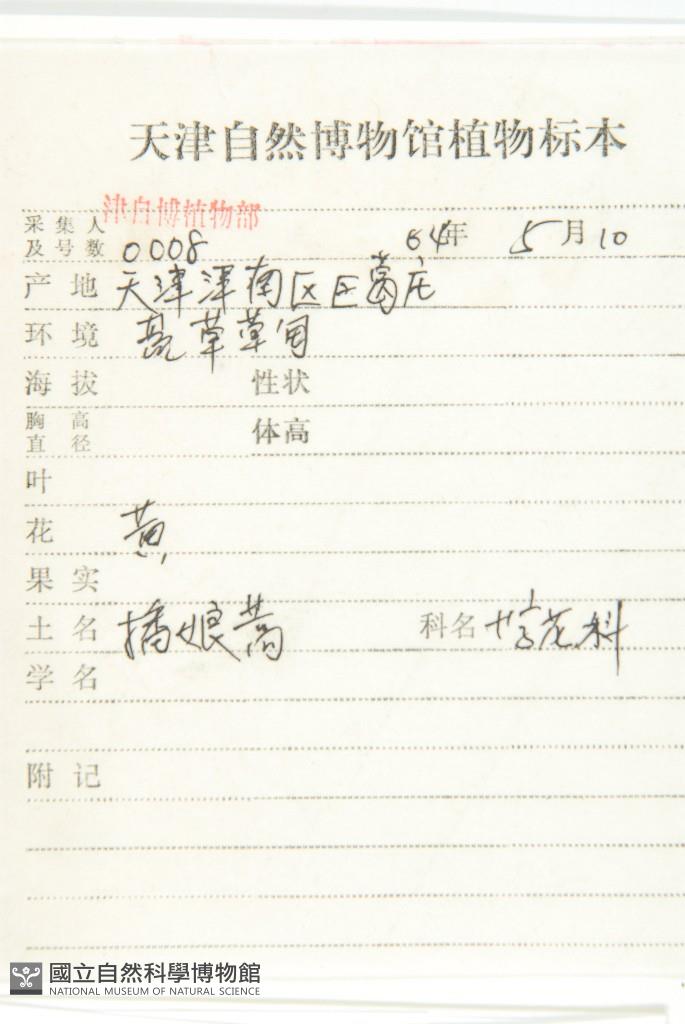 天津自然博物馆植物标本
津自博植物部
采集人
及号数 0008 64年 5月10
产地 天津津南区巨葛庄
环境 草草甸
海拔 性状
胸高
直径 体高
叶
花 黄
果实
土名 播娘蒿 科名 十字花科
学名
附记
國立自然科學博物館
NATIONAL MUSEUM OF NATURAL SCIENCE